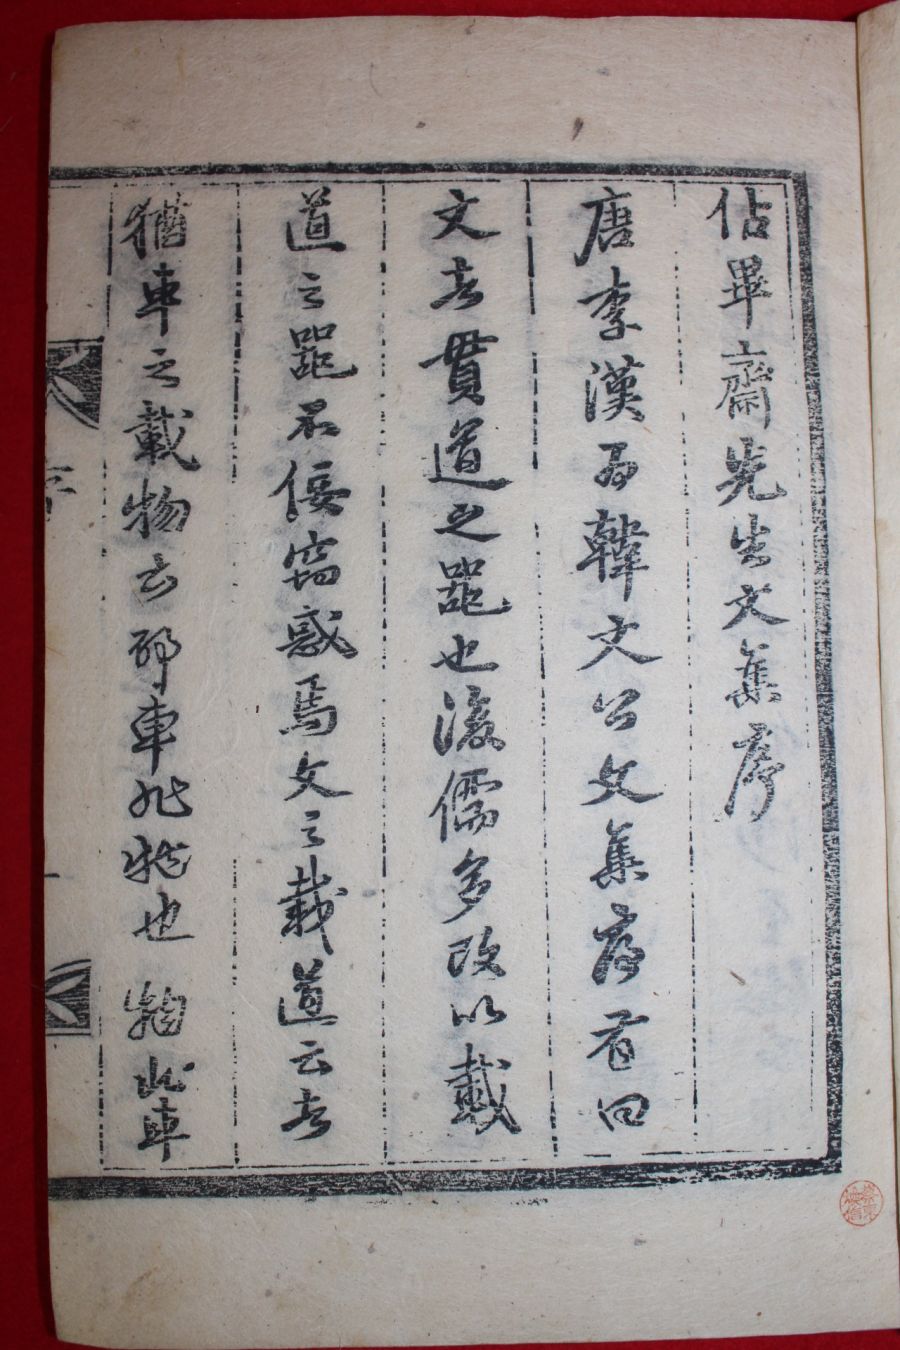 佔畢齋先生文集序
唐李漢爲韓文公文集序首曰
文者貫道之器也後儒多改以載
道之器不佞竊惑焉文之載道云者
猶車之載物云邪車非物也物非車